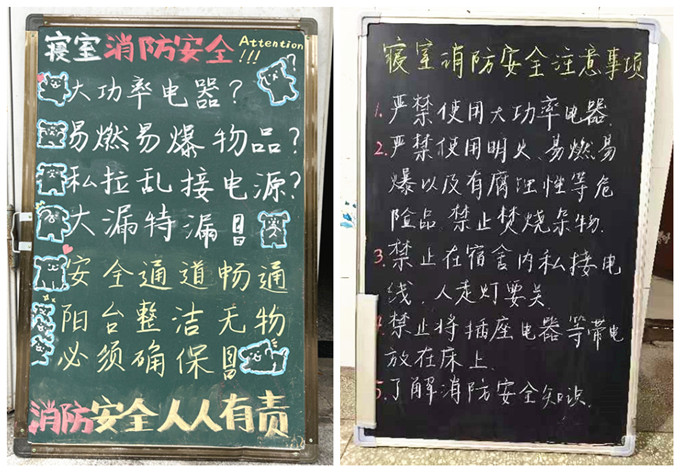 寝室消防安全 Attention!!!
大功率电器?
易燃易爆物品?
私拉乱接电源?
大漏特漏
安全通道畅通
阳台整洁无物
必须确保
消防安全人人有责
寝室消防安全注意事项
1. 严禁使用大功率电器.
2. 严禁使用明火、易燃易
爆以及有腐蚀性等危
险品.禁止焚烧杂物.
3. 禁止在宿舍内私接电
线.人走灯要关.
4. 禁止将插座电器等带电
放在床上.
5. 了解消防安全知识.